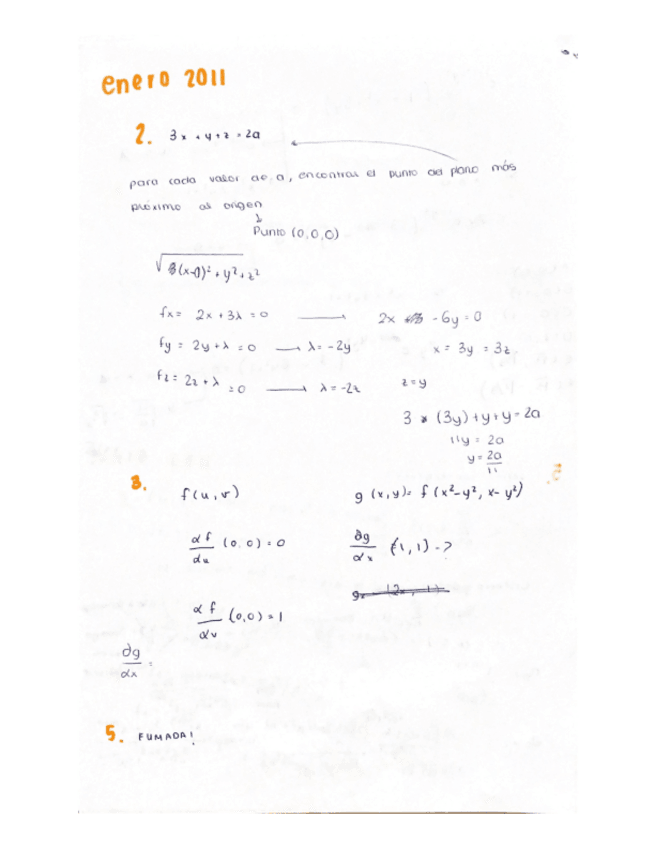 enero 2011
2. 3x + y + z = 2a
para cada valor de a, encontrar el punto del plano más
próximo al origen
↓
Punto (0,0,0)
√3(x-0)² + y² + z²
fx = 2x + 3λ = 0 → 2x - 6y = 0
fy = 2y + λ = 0 → λ = -2y x = 3y = 3z
fz = 2z + λ = 0 → λ = -2z z = y
3 * (3y) + y + y = 2a
11y = 2a
y = 2a/11
3. f(u,v) g(x,y) = f(x²-y², x-y²)
αf/αu (0,0) = 0 ∂g/αx (1,1) - ?
αf/αv (0,0) = 1
∂g/αx =
5. FUMADA!